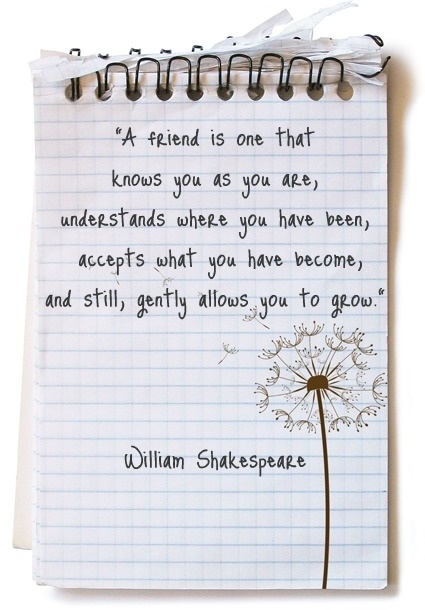 “A friend is one that
knows you as you are,
understands where you have been,
accepts what you have become,
and still, gently allows you to grow.“
William Shakespeare